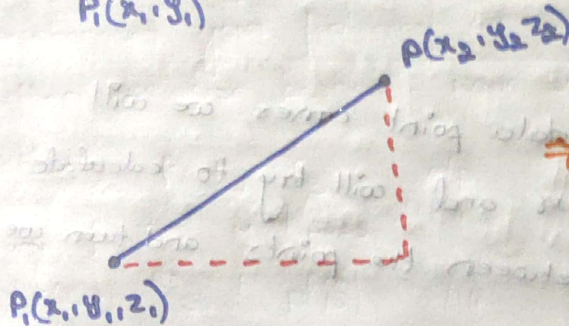 P₁(x₁,y₁)
P(x₂,y₂ z₂)
P₁(x₁,y₁,z₁)